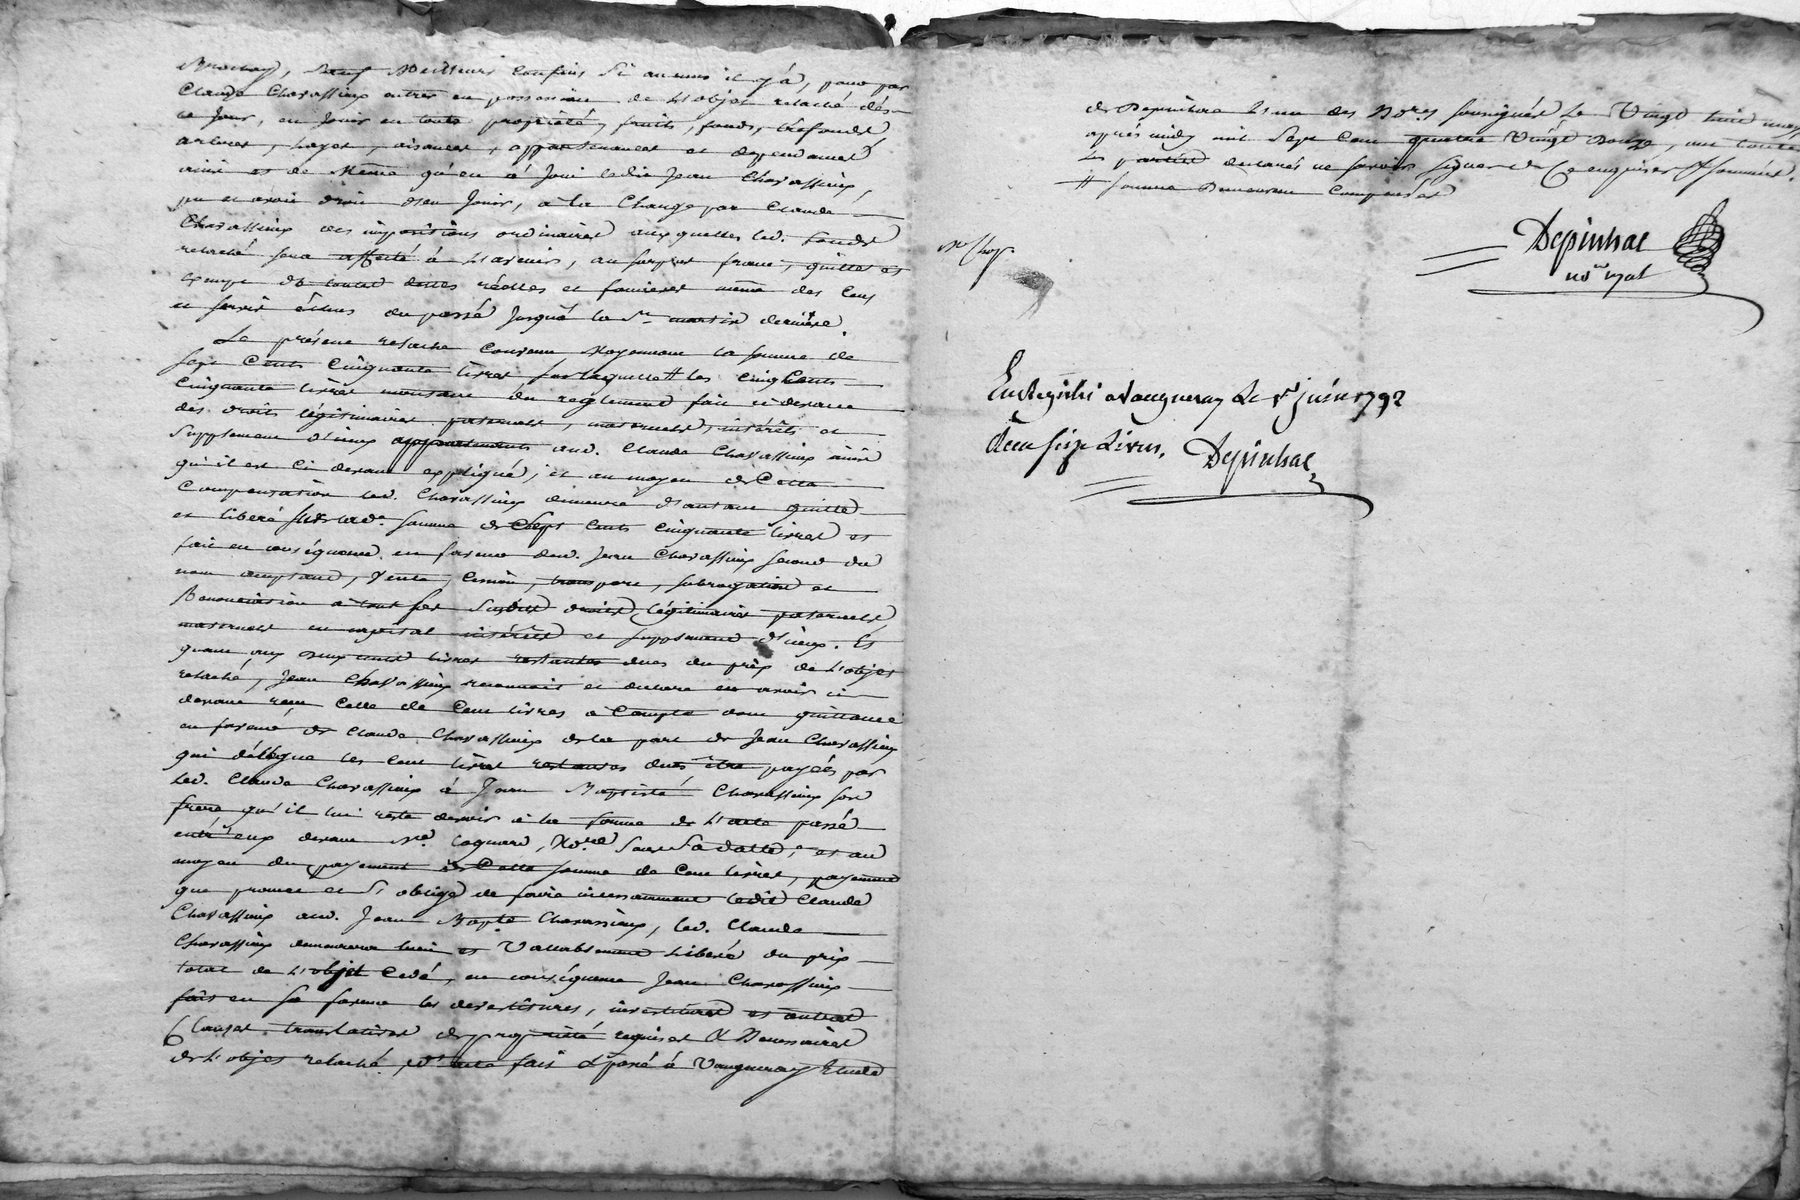 sauf Meilleurs Confins Si aucuns il y a, pour par
Claude Chavassieux entrer en possession de L'objet relaché dés
ce Jour, en Jouir en toute propriété, fruits, fonds, tréfonds,
arbres, hayes, aisances, appartenances et dépendances
ainsi et de Même qu'en à Joui ledit Jean Chavassieux,
pu et avoir droit d'en Jouir, à la Charge par Claude
Chavassieux des impositions ordinaires auxquelles led. fonds
relaché sera affecté à L'avenir, au surplus franc, quitte et
exempt de toutes dettes réelles et foncieres même des Cens
et servis échus du passé Jusqu'à la St. martin derniere.
Le présent relache Convenu Moyennant la somme de
Sept Cents Cinquante livres sur laquelle # les cinq Cents
Cinquante livres montant du reglement fait ci devant
des droits légitimaires paternels, maternels, intérêts et
supplement d'iceux appartenants aud. Claude Chavassieux ainsi
qu'il est Ci devant expliqué, et au moyen de Cette
Compensation led. Chavassieux demeure d'autant quitte
et libéré sur lad. somme de Sept Cents cinquante livres et
fait en conséquence en faveur dud. Jean Chavassieux second du
nom acceptant, Vente, Cession, transport, subrogation et
Renonciation à tout ses Susdits droits légitimaires paternels,
maternels en capital intérêts et supplement d'iceux. Et
quant aux deux cents livres restantes dues du prix de L'objet
relaché, Jean Chavassieux reconnoit et declare en avoir ci
devant reçu Celle de Cent livres à Compte dont quittance
en faveur de Claude Chavassieux de la part de Jean Chavassieux
qui délégue les Cent livres restantes dues être payées par
led. Claude Chavassieux à Jean Baptiste Chavassieux son
frere, qu'il lui reste devoir à la forme de L'acte passé
entr'eux devant Me. Coquard, No.re et au
moyen du payement de Cette somme de Cent livres, payement
que promet et S'oblige de faire incessamment ledit Claude
Chavassieux aud. Jean Bapte. Chavassieux, led. Claude
Chavassieux demeurera bien et Vallablement Libéré du prix
total de L'objet Cedé, en conséquence Jean Chavassieux
fait en sa faveur les devestitures, investitures et autres
Clauses translatives de propriété requises & Necessaires
de L'objet relaché, d. acte fait & passé à Vaugneray Etude
de Depinhac L'un des No.res soussignés Le Vingt huit may
après midy mil Sept Cent quatre Vingt Douze, ont toutes
Les parties declarés ne savoir signer de Ce enquises & sommées.
# somme Demeurent Compensés
Depinhac
no.re royal
Enregistré a Vaugneray Le 1er juin 1792
Reçu seize Livres. Depinhac